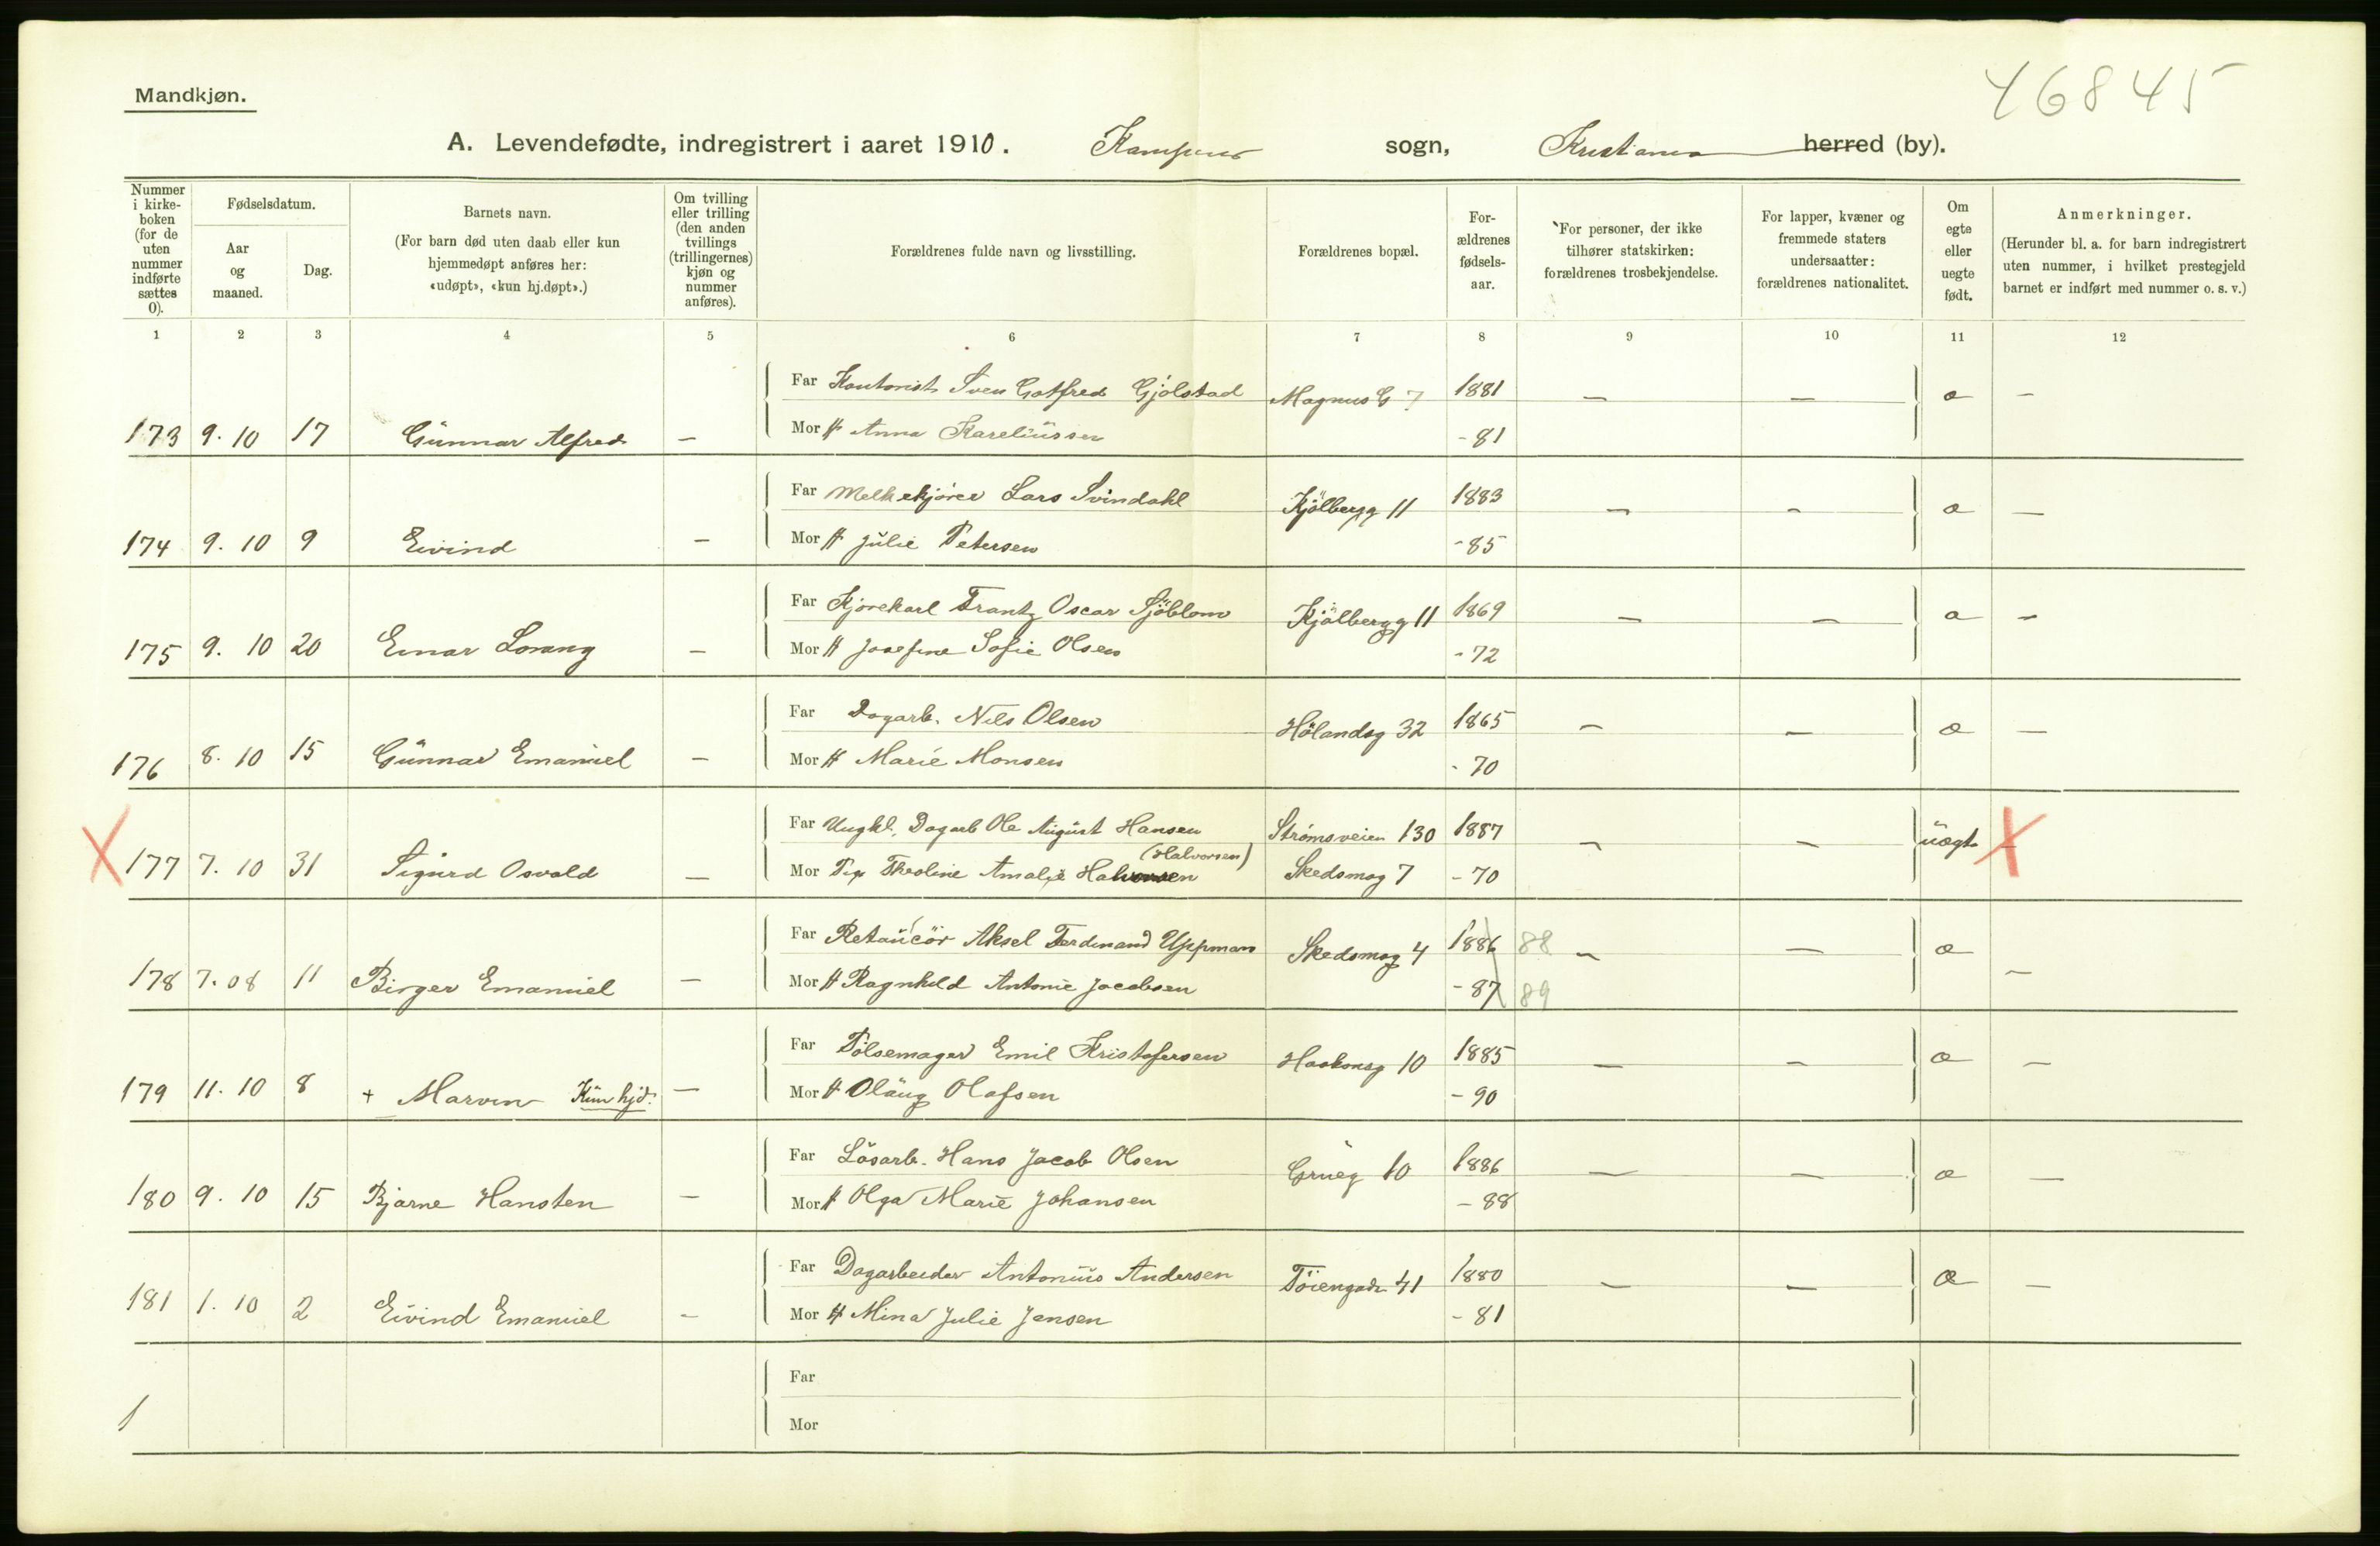 46845
Mandkjøn.
A. Levendefødte, indregistrert i aaret 1910. Kampens sogn, Kristiania herred (by).
Nummer i kirkeboken (for de uten nummer indførte sættes 0).
Fødselsdatum.
Aar og maaned.
Dag.
Barnets navn.
(For barn død uten daab eller kun hjemmedøpt anføres her: «udøpt», «kun hj.døpt».)
Om tvilling eller trilling (den anden tvillings (trillingernes) kjøn og nummer anføres).
Forældrenes fulde navn og livsstilling.
Forældrenes bopæl.
For-ældrenes fødsels-aar.
For personer, der ikke tilhører statskirken: forældrenes trosbekjendelse.
For lapper, kvæner og fremmede staters undersaatter: forældrenes nationalitet.
Om egte eller uegte født.
Anmerkninger.
(Herunder bl. a. for barn indregistrert uten nummer, i hvilket prestegjeld barnet er indført med nummer o. s. v.)
1 2 3 4 5 6 7 8 9 10 11 12
Far Kontorist Sven Gotfred Gjølstad Magnus G 7 1881 — — æ —
173 9. 10 17 Gunnar Alfred — Mor H Anna Kareliussen - 81
Far Melkekjører Lars Svindahl Kjølbergg 11 1883 — — æ —
174 9. 10 9 Eivind — Mor H Julie Petersen - 85
Far Kjørekarl Frantz Oscar Sjöblom Kjølbergg 11 1869 — — æ —
175 9. 10 20 Einar Lorang — Mor H Josefine Sofie Olsen - 72
Far Dagarb. Nils Olsen Hølandsg 32 1865 — — æ —
176 8. 10 15 Gunnar Emanuel — Mor H Marie Monsen - 70
Far Ungkl. Dagarb Ole August Hansen Strømsveien 130 1887 — — uægte —
(Halvorsen)
X 177 7. 10 31 Sigurd Osvald — Mor Pig Theoline Amalie Halvorsen Skedsmog 7 - 70 X
Far Retaucör Aksel Ferdinand Uppman Skedsmog 4 1886 88 — — æ —
178 7. 08 11 Birger Emanuel — Mor H Ragnhild Antonie Jacobsen - 87 89
Far Pølsemager Emil Kristofersen Haakonsg 10 1885 — — æ —
179 11. 10 8 + Marvin Kun hjd. — Mor H Olaug Olafsen - 90
Far Løsarb. Hans Jacob Olsen Grueg 10 1886 — — æ —
180 9. 10 15 Bjarne Hansten — Mor H Olga Marie Johansen - 88
Far Dagarbeider Antonius Andersen Tøiengade 41 1880 — — æ —
181 1. 10 2 Eivind Emanuel — Mor H Mina Julie Jensen - 81
Far
1 Mor